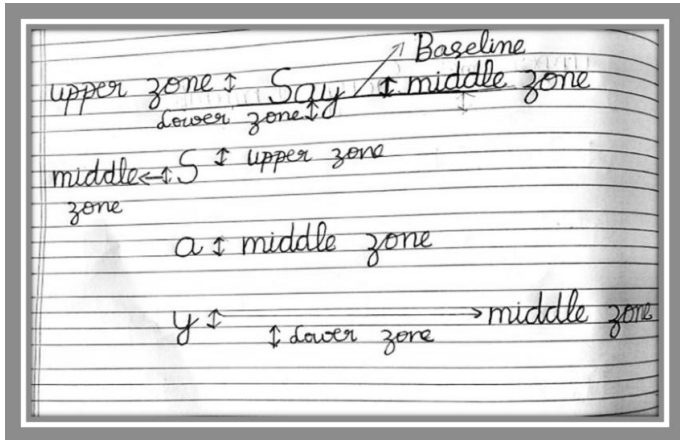 Baseline
upper zone ↕ Say ↕ middle zone
Lower zone ↕
middle ←↕ S ↕ upper zone
zone
a ↕ middle zone
y ↕ → middle zone
↕ Lower zone